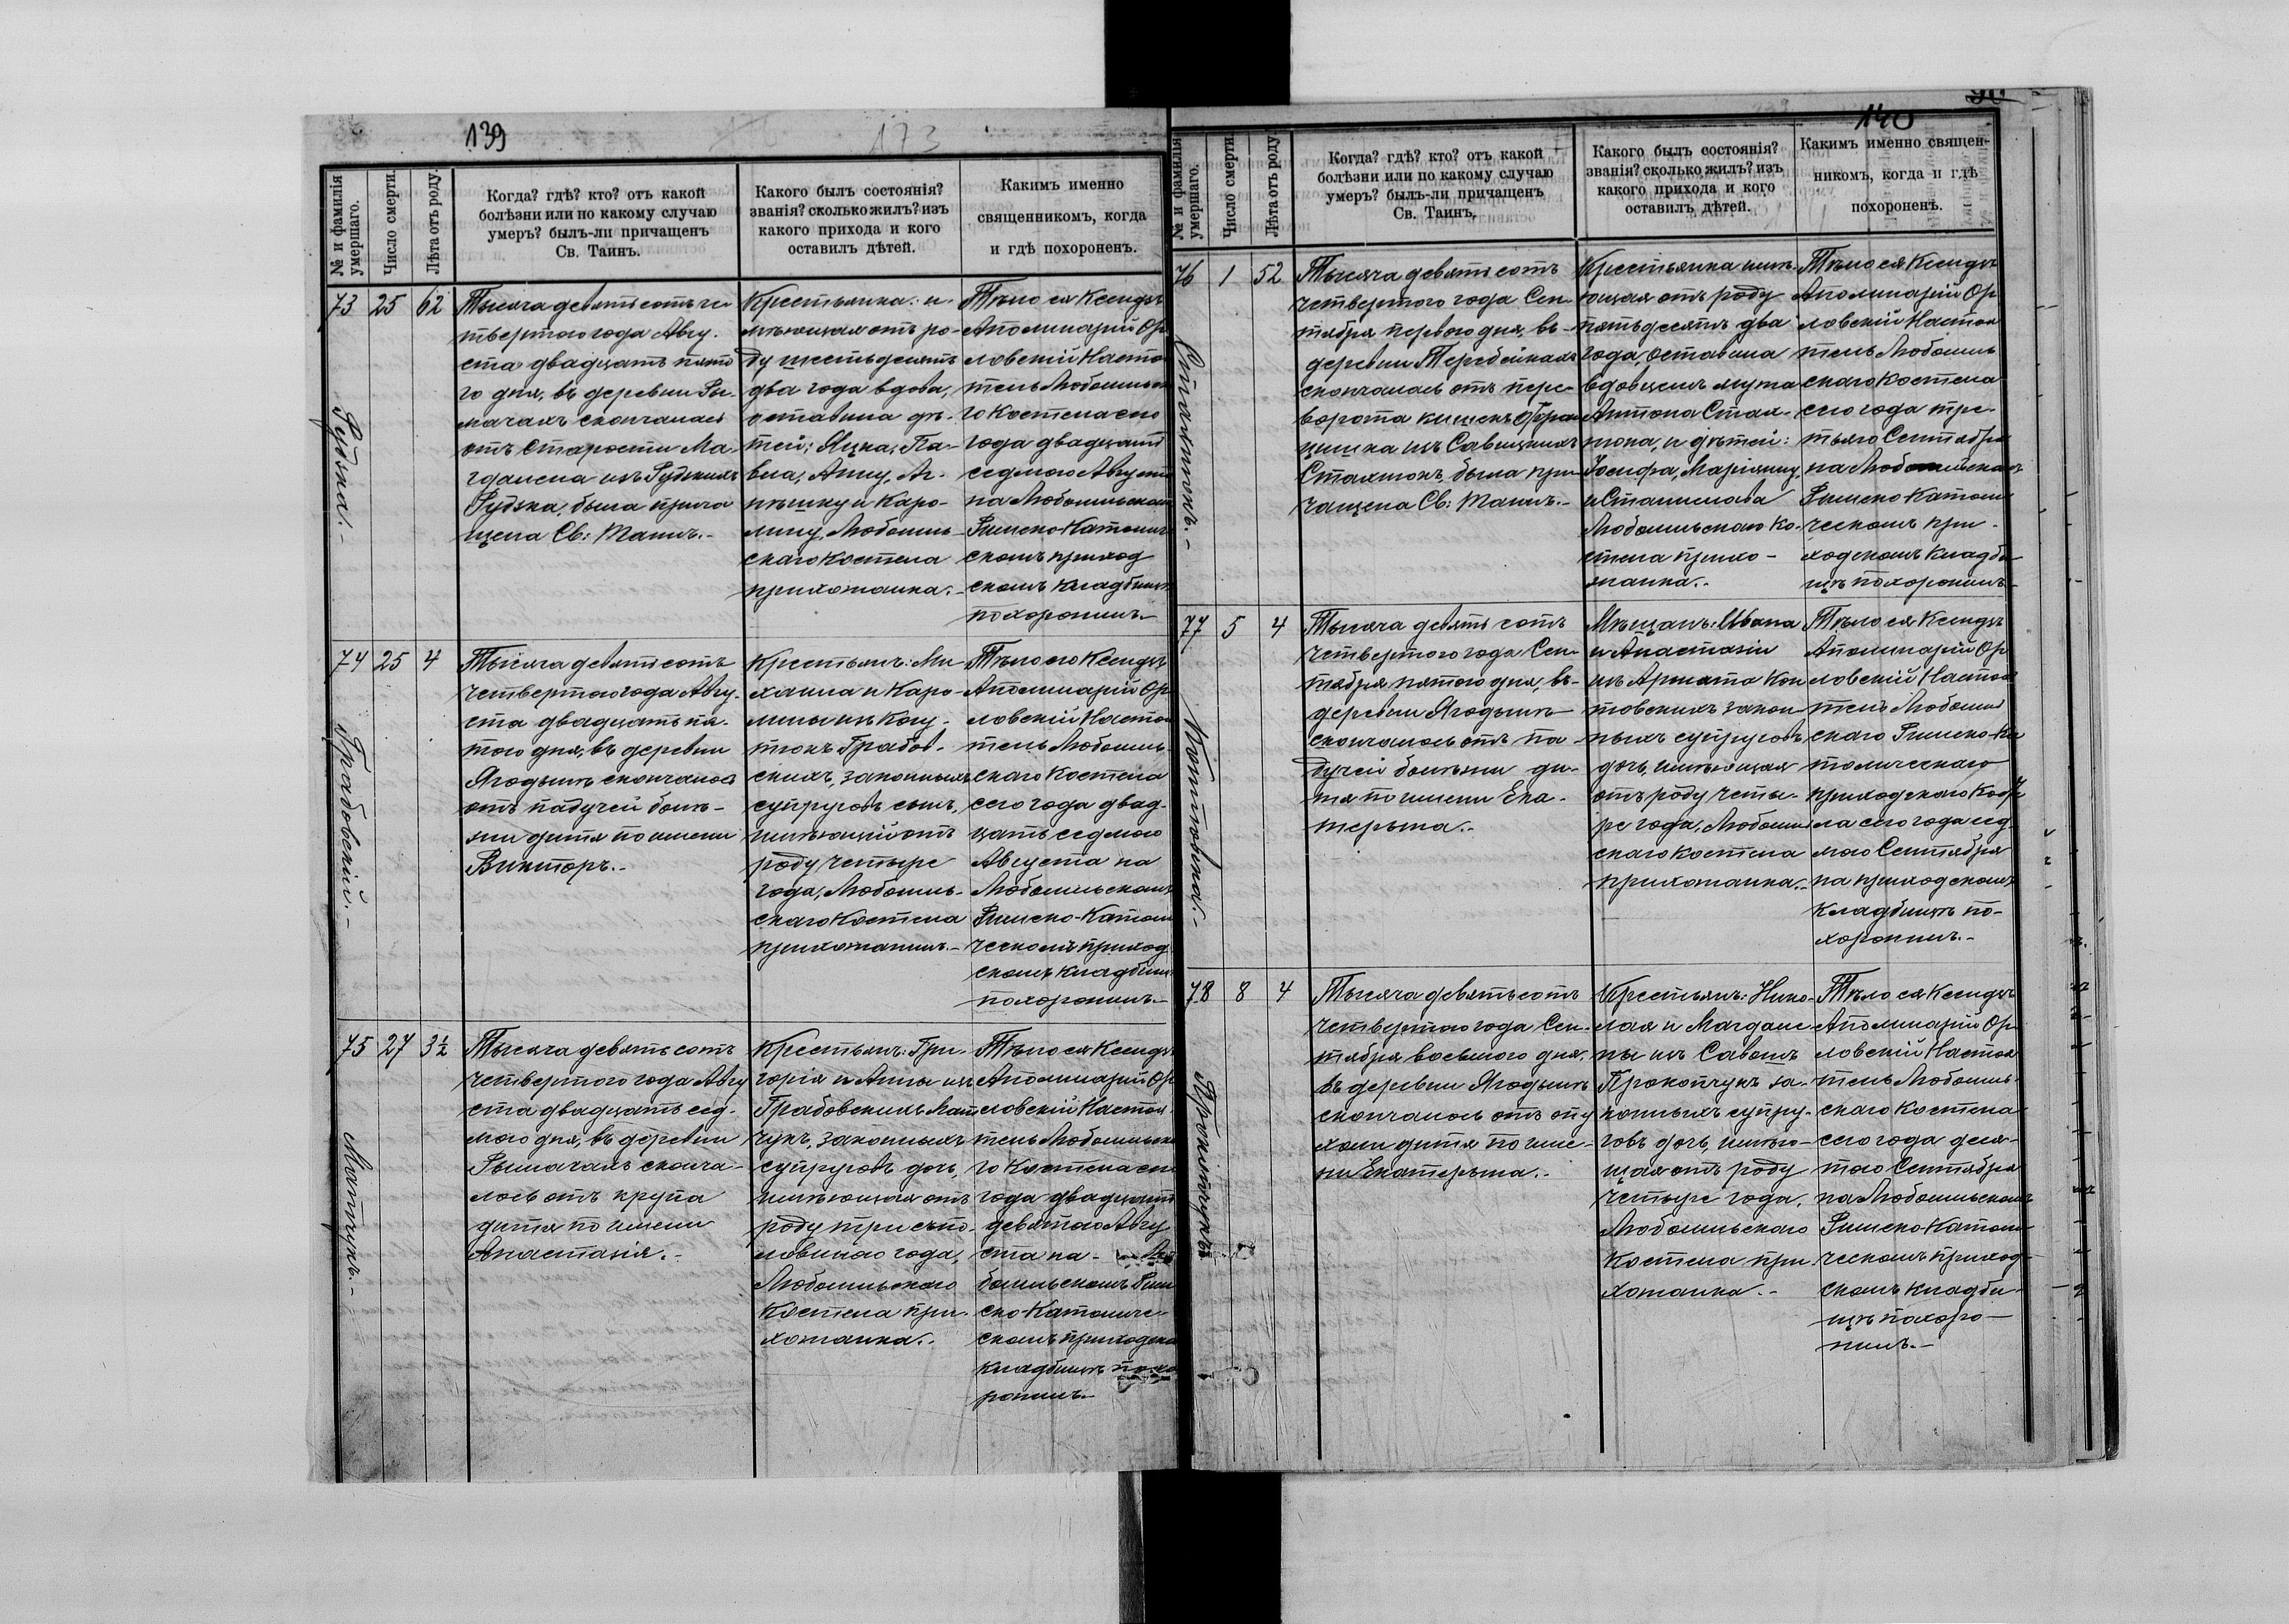 139
173
№ и фамилія умершаго.
Число смерти.
Лѣта отъ роду.
Когда? гдѣ? кто? отъ какой
болѣзни или по какому случаю
умеръ? былъ-ли причащенъ
Св. Таинъ.
Какого былъ состоянія?
званія? сколько жилъ? изъ
какого прихода и кого
оставилъ дѣтей.
Какимъ именно
священникомъ, когда
и гдѣ похороненъ.
73 25 62
Рудзка.-
Тысяча девятьсотъ че
твертого года Авгу.
ста двадцать пято
го дня, въ деревни Ры.
мачахъ скончалась
отъ старости Ма.
гдалена изъ Рудскихъ
Рудзка, была прича
щена Св: Таинъ.-
Крестьянка: и.
мѣющая отъ ро-
ду шестьдесятъ
два года вдова,
оставила дѣ-
тей: Яцка, Па-
вла, Анну, Аг-
нѣшку и Каро-
лину, Любомль-
скаго костела
прихожанка.-
Тѣло ея Ксендзъ
Аполинарій Ор
ловскій Настоя
тель Любомльска
го Костела сего
года двадцать
седмого Августа
на Любомльскомъ
Римско-Католич
скомъ приход
скомъ кладбищѣ
похоронилъ.-
74 25 4
Грабовскій.-
Тысяча девятьсотъ
четвертого года Авгу.
ста двадцать пя.
того дня, въ деревни
Ягодынѣ скончалось
отъ падучей болѣ-
зни дитя по имени
Викторъ.-
Крестьянъ: Ми
хаила и Каро-
лины изъ Козу.
тюкъ Грабов-
скихъ, законныхъ
супруговъ сынъ,
имѣющій отъ
роду четыре
года, Любомль-
скаго костела
прихожанинъ.-
Тѣло его Ксендзъ
Аполинарій Ор
ловскій Настоя
тель Любомль-
скаго Костела
сего года двад-
цать седмого
Августа на
Любомльскомъ
Римско-Католи
ческомъ приход
скомъ кладбищѣ
похоронилъ.-
75 27 3½
Матчукъ.-
Тысяча девятьсотъ
четвертого года Авгу
ста двадцать сед-
мого дня, въ деревни
Рымачахъ сконча-
лось отъ крупа
дитя по имени
Анастасія.-
Крестьянъ: Гри-
горія и Анны изъ
Грабовскихъ Мат
чукъ, законныхъ
супруговъ дочь,
имѣющая отъ
роду три съ по-
ловиною года,
Любомльскаго
Костела при-
хожанка.-
Тѣло ея Ксендзъ
Аполинарій Ор
ловскій Настоя
тель Любомльска
го Костела сего
года двадцать
девятого Авгу
ста на Лю
бомльскомъ Рим
ско-Католиче-
скомъ приходско
кладбищѣ похо
ронилъ.-
140
№ и фамилія умершаго.
Число смерти.
Лѣта отъ роду.
Когда? гдѣ? кто? отъ какой
болѣзни или по какому случаю
умеръ? былъ-ли причащенъ
Св. Таинъ.
Какого былъ состоянія?
званія? сколько жилъ? изъ
какого прихода и кого
оставилъ дѣтей.
Какимъ именно священ-
никомъ, когда и гдѣ
похороненъ.
76 1 52
Тысяча девятьсотъ
четвертого года Сен-
тября первого дня, въ-
деревни Теребейкахъ
скончалась отъ пере-
ворота кишекъ Фран
цишка изъ Савицкихъ
Стахнюкъ, была при
чащена Св: Таинъ.-
Крестьянка имѣ-
ющая отъ роду
пятьдесятъ два
года, оставила
вдовцемъ мужа
Антона Стах-
нюка, и дѣтей:
Іосифа, Маріянну,
и Станислава
Любомльскаго ко-
стела прихо-
жанка.-
Тѣло ея Ксендзъ
Аполинарій Ор
ловскій Настоя
тель Любомль
скаго Костела
сего года тре-
тьяго Сентября
на Любомльскомъ
Римско Католи
ческомъ при-
ходскомъ кладби
щѣ похоронилъ.-
77 5 4
Тысяча девятьсотъ
четвертого года Сен-
тября пятого дня, въ-
деревни Ягодынѣ
скончалось отъ па-
дучей болѣзни ди-
тя по имени Ека-
терына.-
Мѣщанъ: Ивана
и Анастасіи
законныхъ супруговъ,
дочь, имѣющая
отъ роду четы-
ре года, Любомль
скаго костела
прихожанка.-
Тѣло ея Ксендзъ
Аполинарій Ор
ловскій Настоя
тель Любомль
скаго Римско-Ка
толическаго
приходскаго Косте
ла сего года сед
мого Сентября
на приходскомъ
кладбищѣ по-
хоронилъ.-
78 8 4
Прокопчукъ.-
Тысяча девятьсотъ
четвертого года Сен-
тября восьмого дня,
въ деревни Ягодынѣ
скончалось отъ опу
холи дитя по име-
ни Екатерына.-
Крестьянъ: Нико-
лая и Магдале-
ны изъ Савошъ
Прокопчукъ за-
конныхъ супру-
говъ дочь, имѣю-
щая отъ роду
четыре года,
Любомльскаго
Костела при
хожанка.-
Тѣло ея Ксендзъ
Аполинарій Ор
ловскій Настоя
тель Любомль-
скаго Костела
сего года деся-
того Сентября
на Любомльскомъ
Римско-Католи
ческомъ приход-
скомъ кладби-
щѣ похоро-
нилъ.-